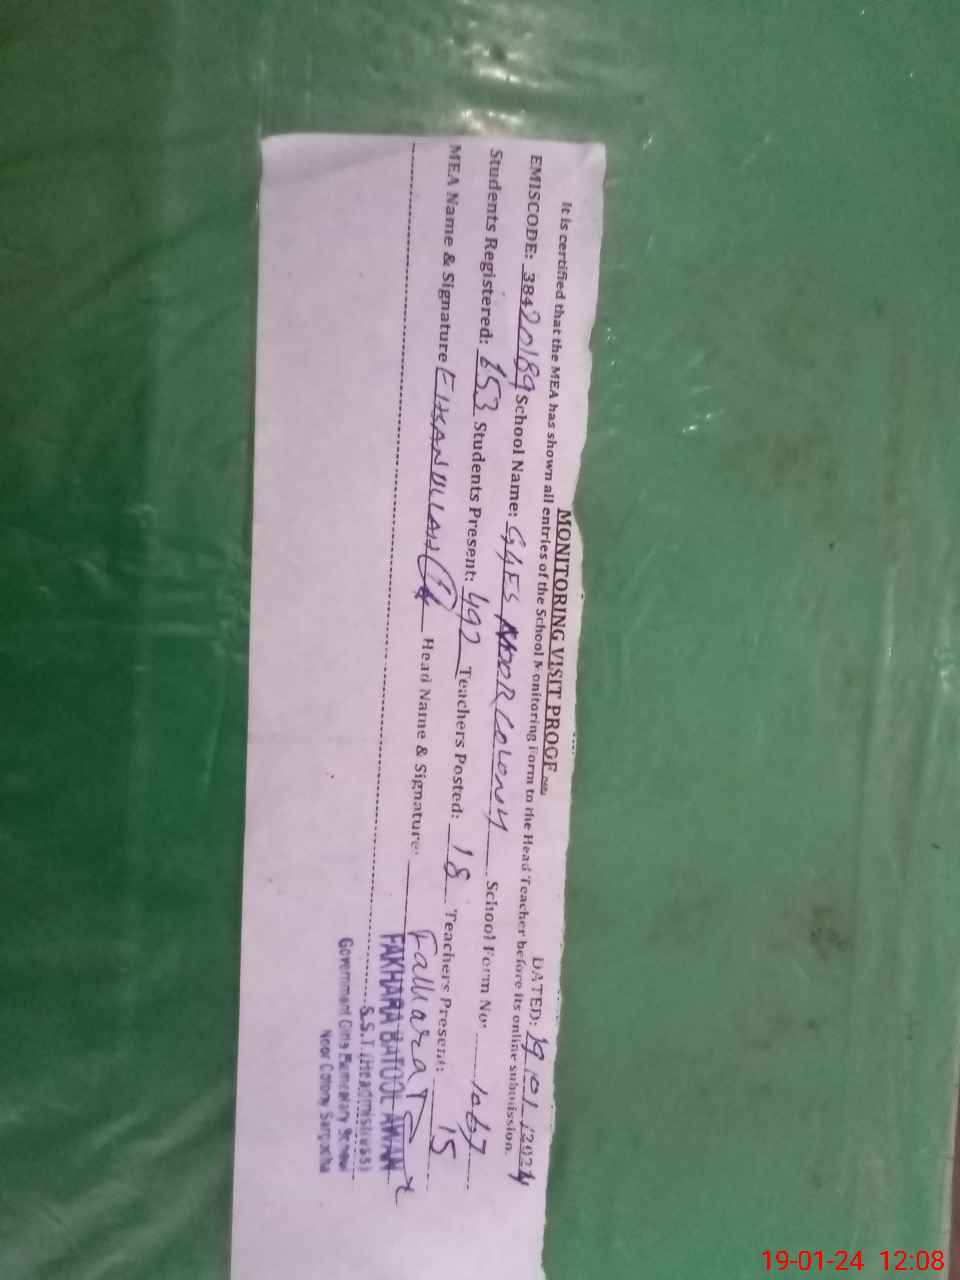 MONITORING VISIT PROOF
DATED: 19/01/2024
It is certified that the MEA has shown all entries of the School Monitoring Form to the Head Teacher before its online submission.
EMISCODE: 38420189 School Name: GGES NOOR COLONY School Form No: 1067
Students Registered: 653 Students Present: 492 Teachers Posted: 18 Teachers Present: 15
MEA Name & Signature Head Name & Signature: Fakhara
FAKHARA BATOOL AWAN
S.S.T (Headmistress)
Government Girls Elementary School
Noor Colony Sargodha
19-01-24 12:08